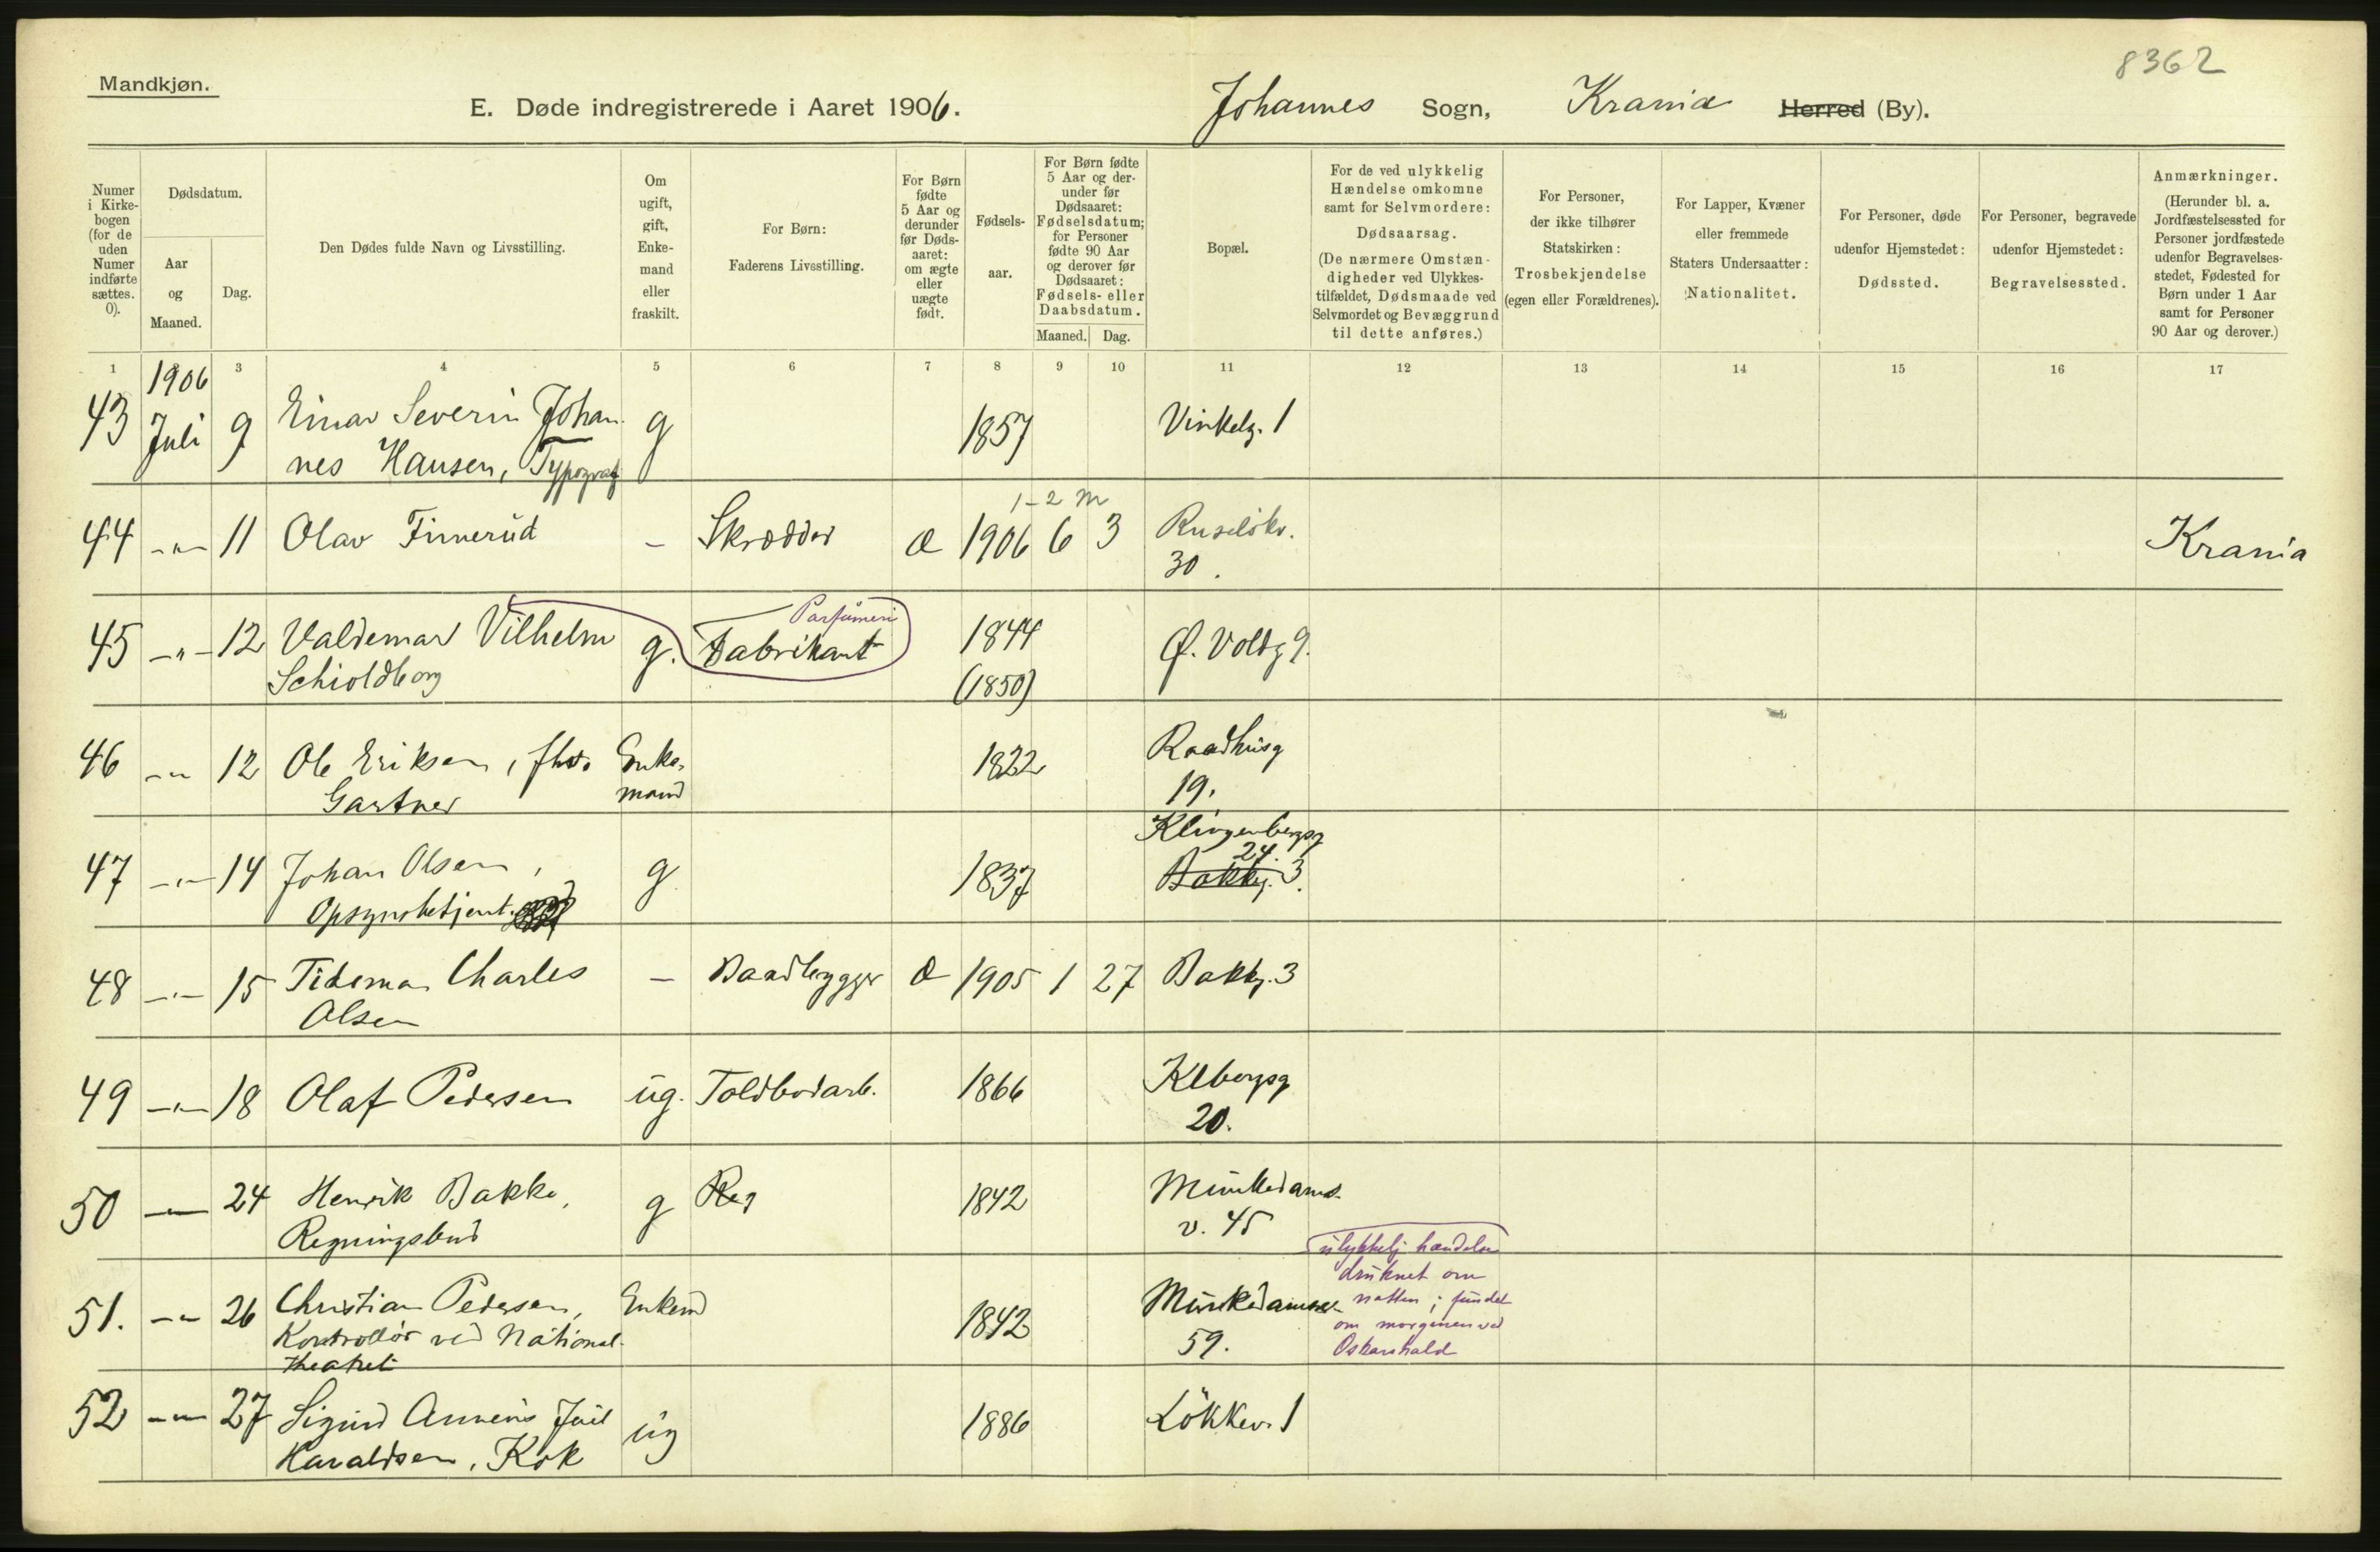 8362
Mandkjøn.
E. Døde indregistrerede i Aaret 1906.
Johannes Sogn, Krania Herred (By).
Numer
i Kirke-
bogen
(for de
uden
Numer
indførte
sættes.
0).
Dødsdatum.
Aar
og
Maaned.
Dag.
Den Dødes fulde Navn og Livsstilling.
Om
ugift,
gift,
Enke-
mand
eller
fraskilt.
For Børn:
Faderens Livsstilling.
For Børn
fødte
5 Aar og
derunder
før Døds-
aaret:
om ægte
eller
uægte
født.
Fødsels-
aar.
For Børn fødte
5 Aar og der-
under før
Dødsaaret:
Fødselsdatum;
for Personer
fødte 90 Aar
og derover før
Dødsaaret:
Fødsels- eller
Daabsdatum.
Maaned. Dag.
Bopæl.
For de ved ulykkelig
Hændelse omkomne
samt for Selvmordere:
Dødsaarsag.
(De nærmere Omstæn-
digheder ved Ulykkes-
tilfældet, Dødsmaade ved
Selvmordet og Bevæggrund
til dette anføres.)
For Personer,
der ikke tilhører
Statskirken:
Trosbekjendelse
(egen eller Forældrenes).
For Lapper, Kvæner
eller fremmede
Staters Undersaatter:
Nationalitet.
For Personer, døde
udenfor Hjemstedet:
Dødssted.
For Personer, begravede
udenfor Hjemstedet:
Begravelsessted.
Anmærkninger.
(Herunder bl. a.
Jordfæstelsessted for
Personer jordfæstede
udenfor Begravelses-
stedet, Fødested for
Børn under 1 Aar
samt for Personer
90 Aar og derover.)
1 3 4 5 6 7 8 9 10 11 12 13 14 15 16 17
1906
43 Juli 9 Einar Severin Johan- g 1857 Vinkelg. 1
nes Hansen, Typograf
1-2 m
44 -"- 11 Olav Finnerud - Skrædder æ 1906 6 3 Ruseløkv. Krania
30.
Parfumeri
45 -"- 12 Valdemar Vilhelm g. Fabrikant 1844 Ø. Voldg 9.
Schioldborg (1850)
46 -"- 12 Ole Eriksen, fhv. Enke- 1822 Raadhusg
Gartner mand 19.
Klingenbergsg
24.
47 -"- 14 Johan Olsen, g 1837 Bakkg. 3.
Opsynsbetjent.
48 -"- 15 Tideman Charles - Baadbygger æ 1905 1 27 Bakkg. 3
Olsen
49 -"- 18 Olaf Pedersen ug. Toldbodarb. 1866 Klbergsg
20.
50 -"- 24 Henrik Bakke, g Reg 1842 Munkedams-
Regningsbud v. 45
ulykkelig hændelse
druknet om
51. -"- 26 Christian Pedersen, Enkem 1842 Munkedamsv. natten; fundet
Kontrollør ved National- 59. om morgenen ved
theatret Oskarshald
52 -"- 27 Sigurd Annæus Juel ug 1886 Løkkev. 1
Haraldsen, Kok